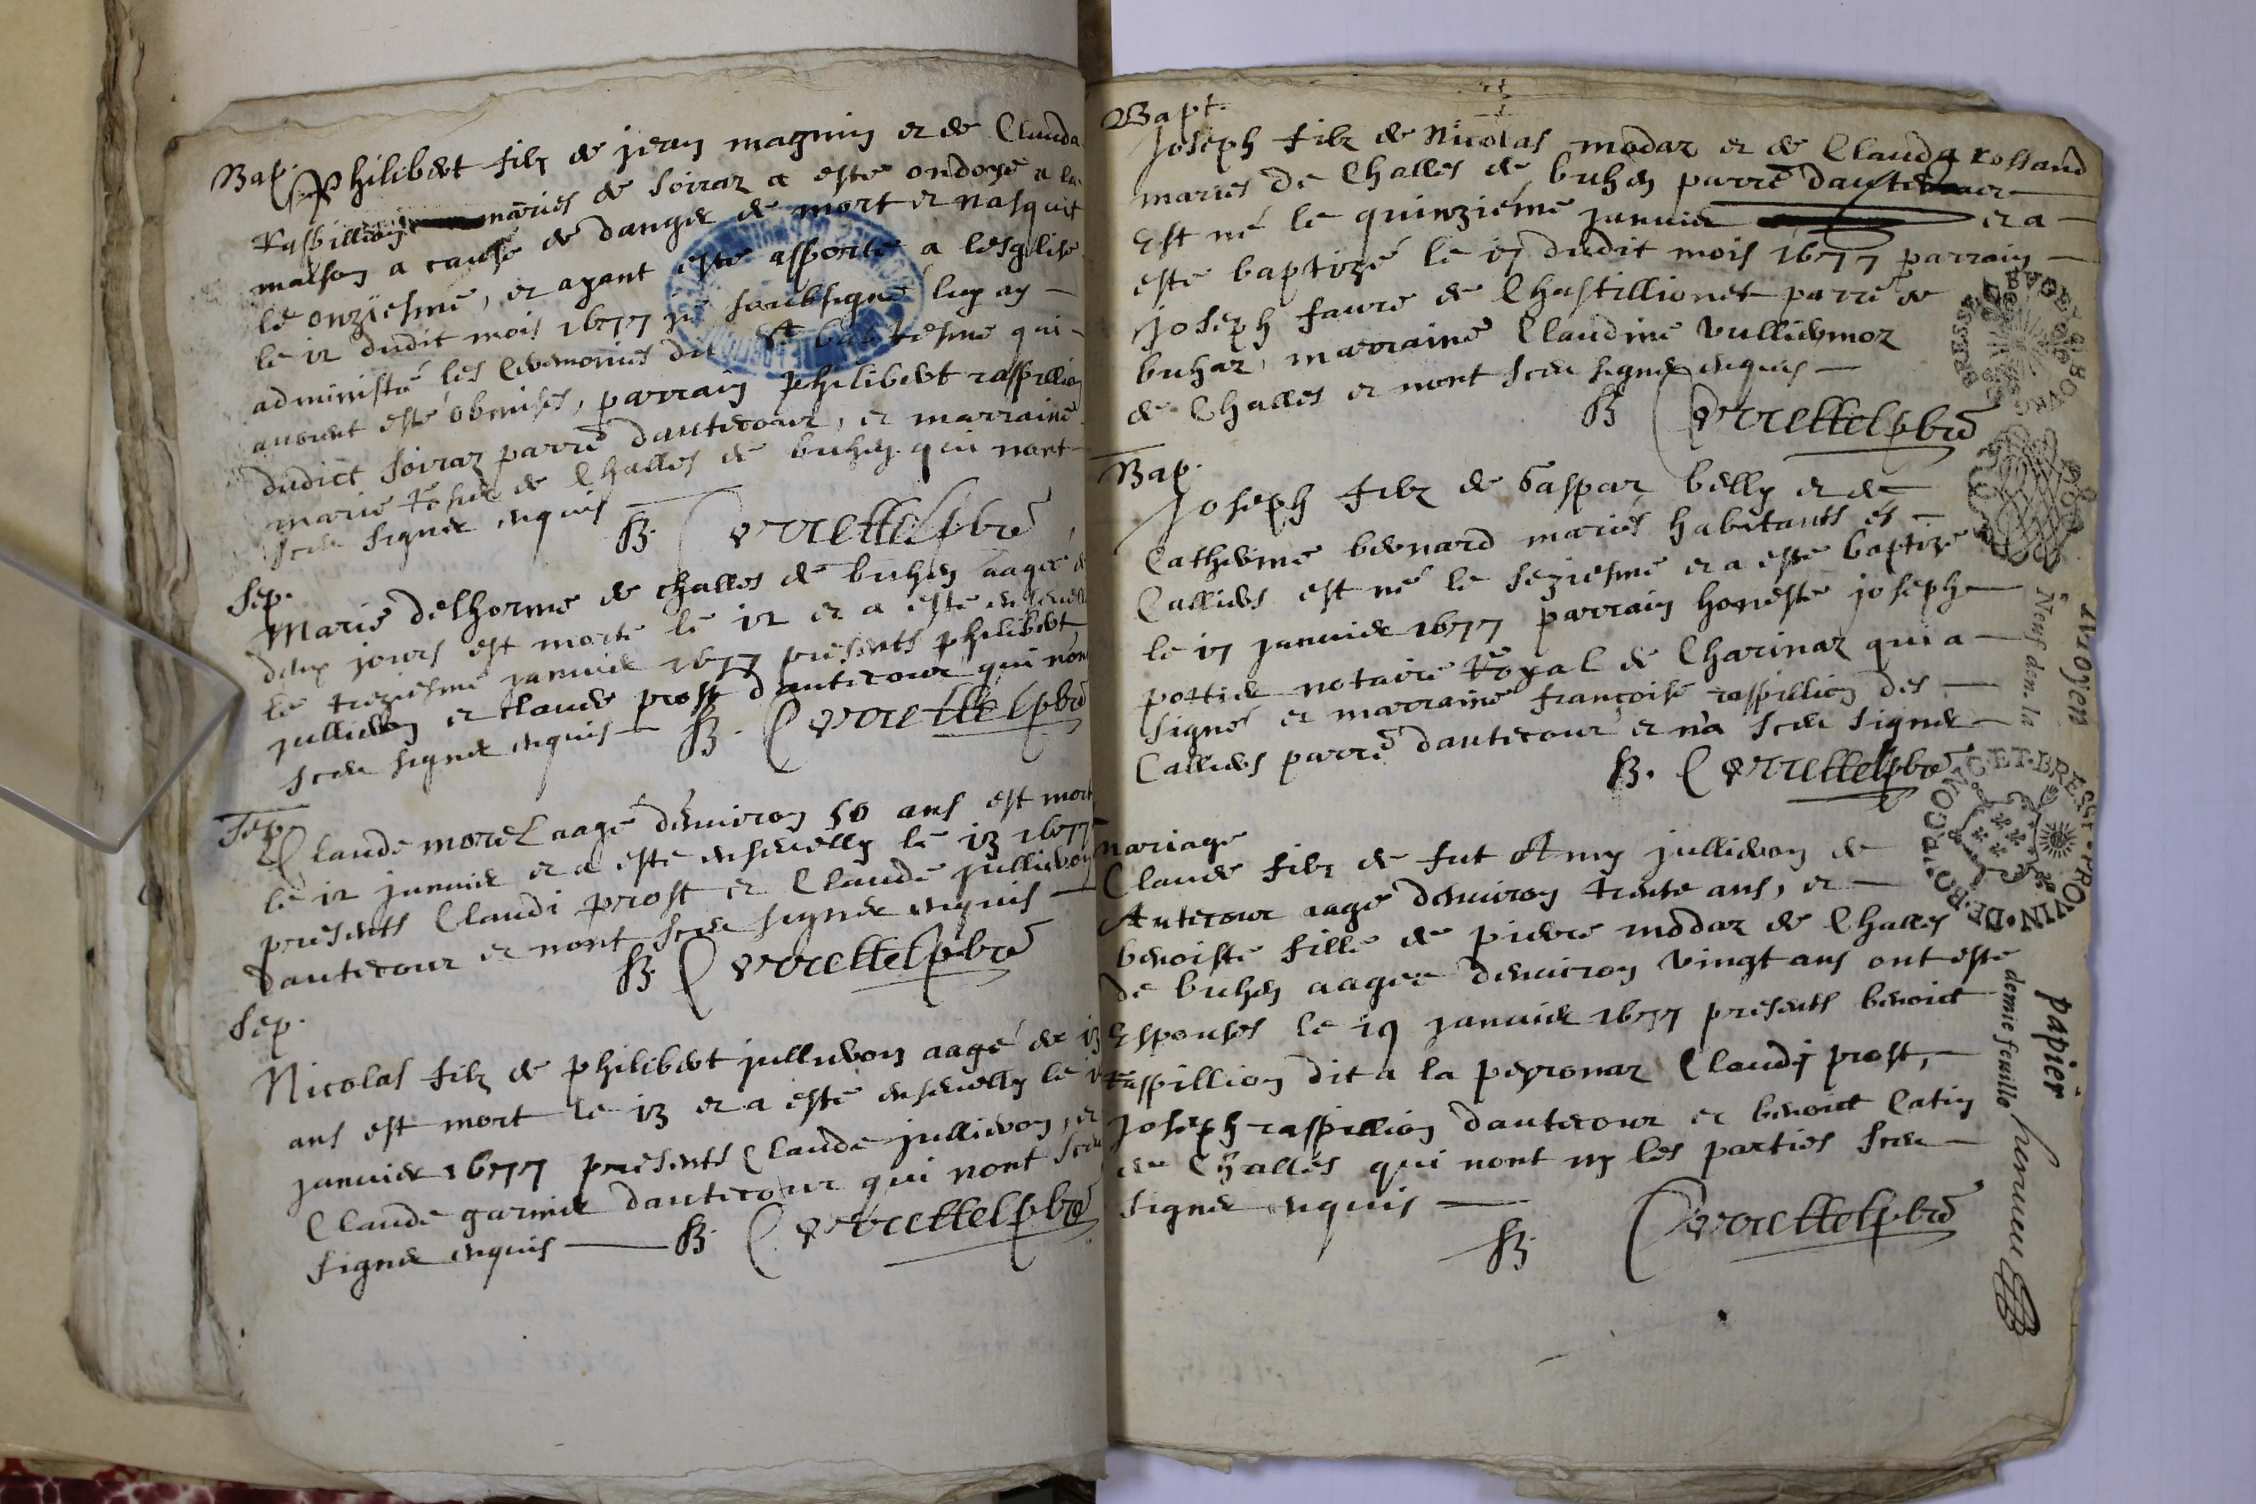 Bap.
Philibert filz de jean magnin et de Clauda
Raspillion mariés de soirraz a esté ondoyé a la
maison a cause de danger de mort et nasquit
le onziesme, et ayant esté apporté a lesglise
le 12 dudit mois 1677 je soubsigné luy ay
administré les Ceremonies du St baptesme qui
avoient esté obmises, parrain philibert raspillion
dudict soirraz parre dautecour, et marraine
marie de Challes de buhen qui nont
sceu signer enquis
B. Cerrettel pbre
Sep.
Marie delhorme de challes de buhen aagée de
deux jours est morte le 12 et a esté ensevelie
le treziesme janvier 1677 presents philibert
jullieron et claude prost dautecour qui nont
sceu signer enquis B. Cerrettel pbre
Sep.
Claude morel aagé denviron 50 ans est mort
le 12 janvier et a esté ensevelly le 13 1677
presents Claudi prost et Claude jullieron
dautecour et nont sceu signer enquis
B. Cerrettel pbre
Sep.
Nicolas filz de philibert jullieron aagé de 13
ans est mort le 13 et a esté ensevelly le
janvier 1677 presents Claude jullieron, et
Claude garnier dautecour qui nont sceu
signer enquis B. Cerrettel pbre
Bapt.
Joseph filz de Nicolas modaz et de Clauda rossand
mariés de Challes de buhen parre dautecour
Est né le quinziéme janvier et a
esté baptizé le 17 dudit mois 1677 parrain
Joseph faure de Chastillionet parre de
buhaz, marraine Claudine vulliermoz
de Challes et nont sceu signer enquis
B Cerrettel pbre
Bap.
Joseph filz de Gaspar belly et de
Catherine bernard mariés habitants és
Calliers est né le seziesme et a esté baptizé
le 17 janvier 1677 parrain honeste joseph
portier notaire Royal de Charinaz qui a
signé et marraine françoise raspillion des
Calliers parre dautecour et na sceu signer
B. Cerrettel pbre
Mariage
Claude filz de fut Amy jullieron de
Autecour aagé denviron trente ans, et
benoiste fille de pierre modaz de Challes
de buhen aagée denviron vingt ans ont esté
Espousés le 19 janvier 1677 presents benoict
raspillion dit a la peyronaz Claudy prost,
Joseph raspillion dautecour et benoict Catin
de Challes qui nont ny les parties sceu
signer enquis
B. Cerrettel pbre
Moyen papier
Neuf den. la demie feuille
PROVIN. DE BOVRGONG. ET. BRESSE